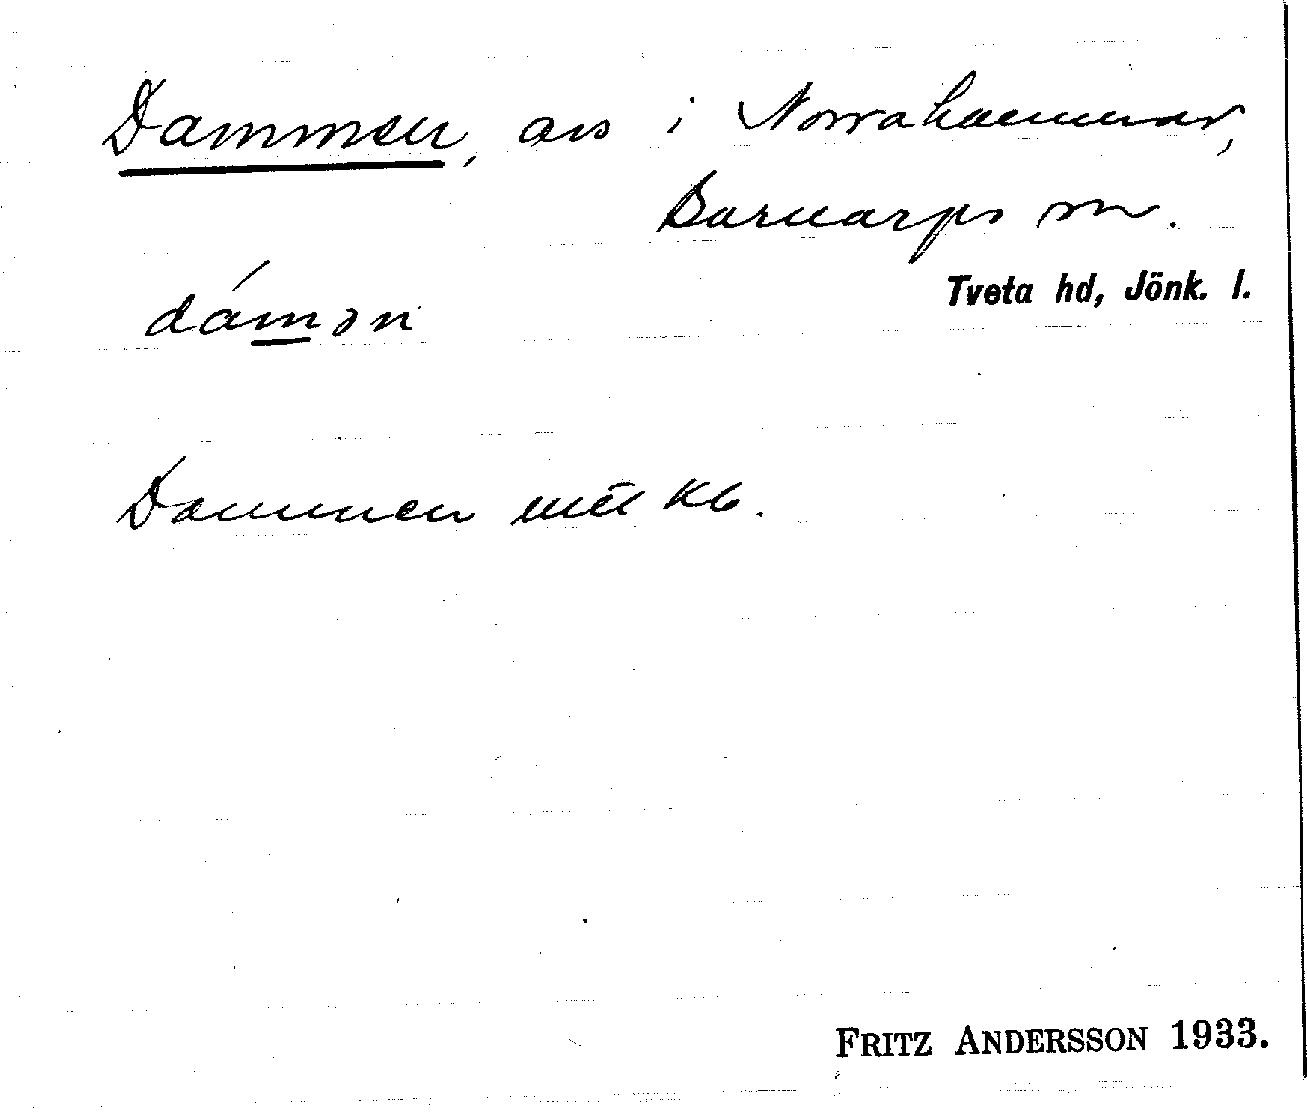 Dammen, avs i Norrahammar,
Barnarps sn.
Tveta hd, Jönk. l.
dámən
Dammen enl Kb.
FRITZ ANDERSSON 1933.